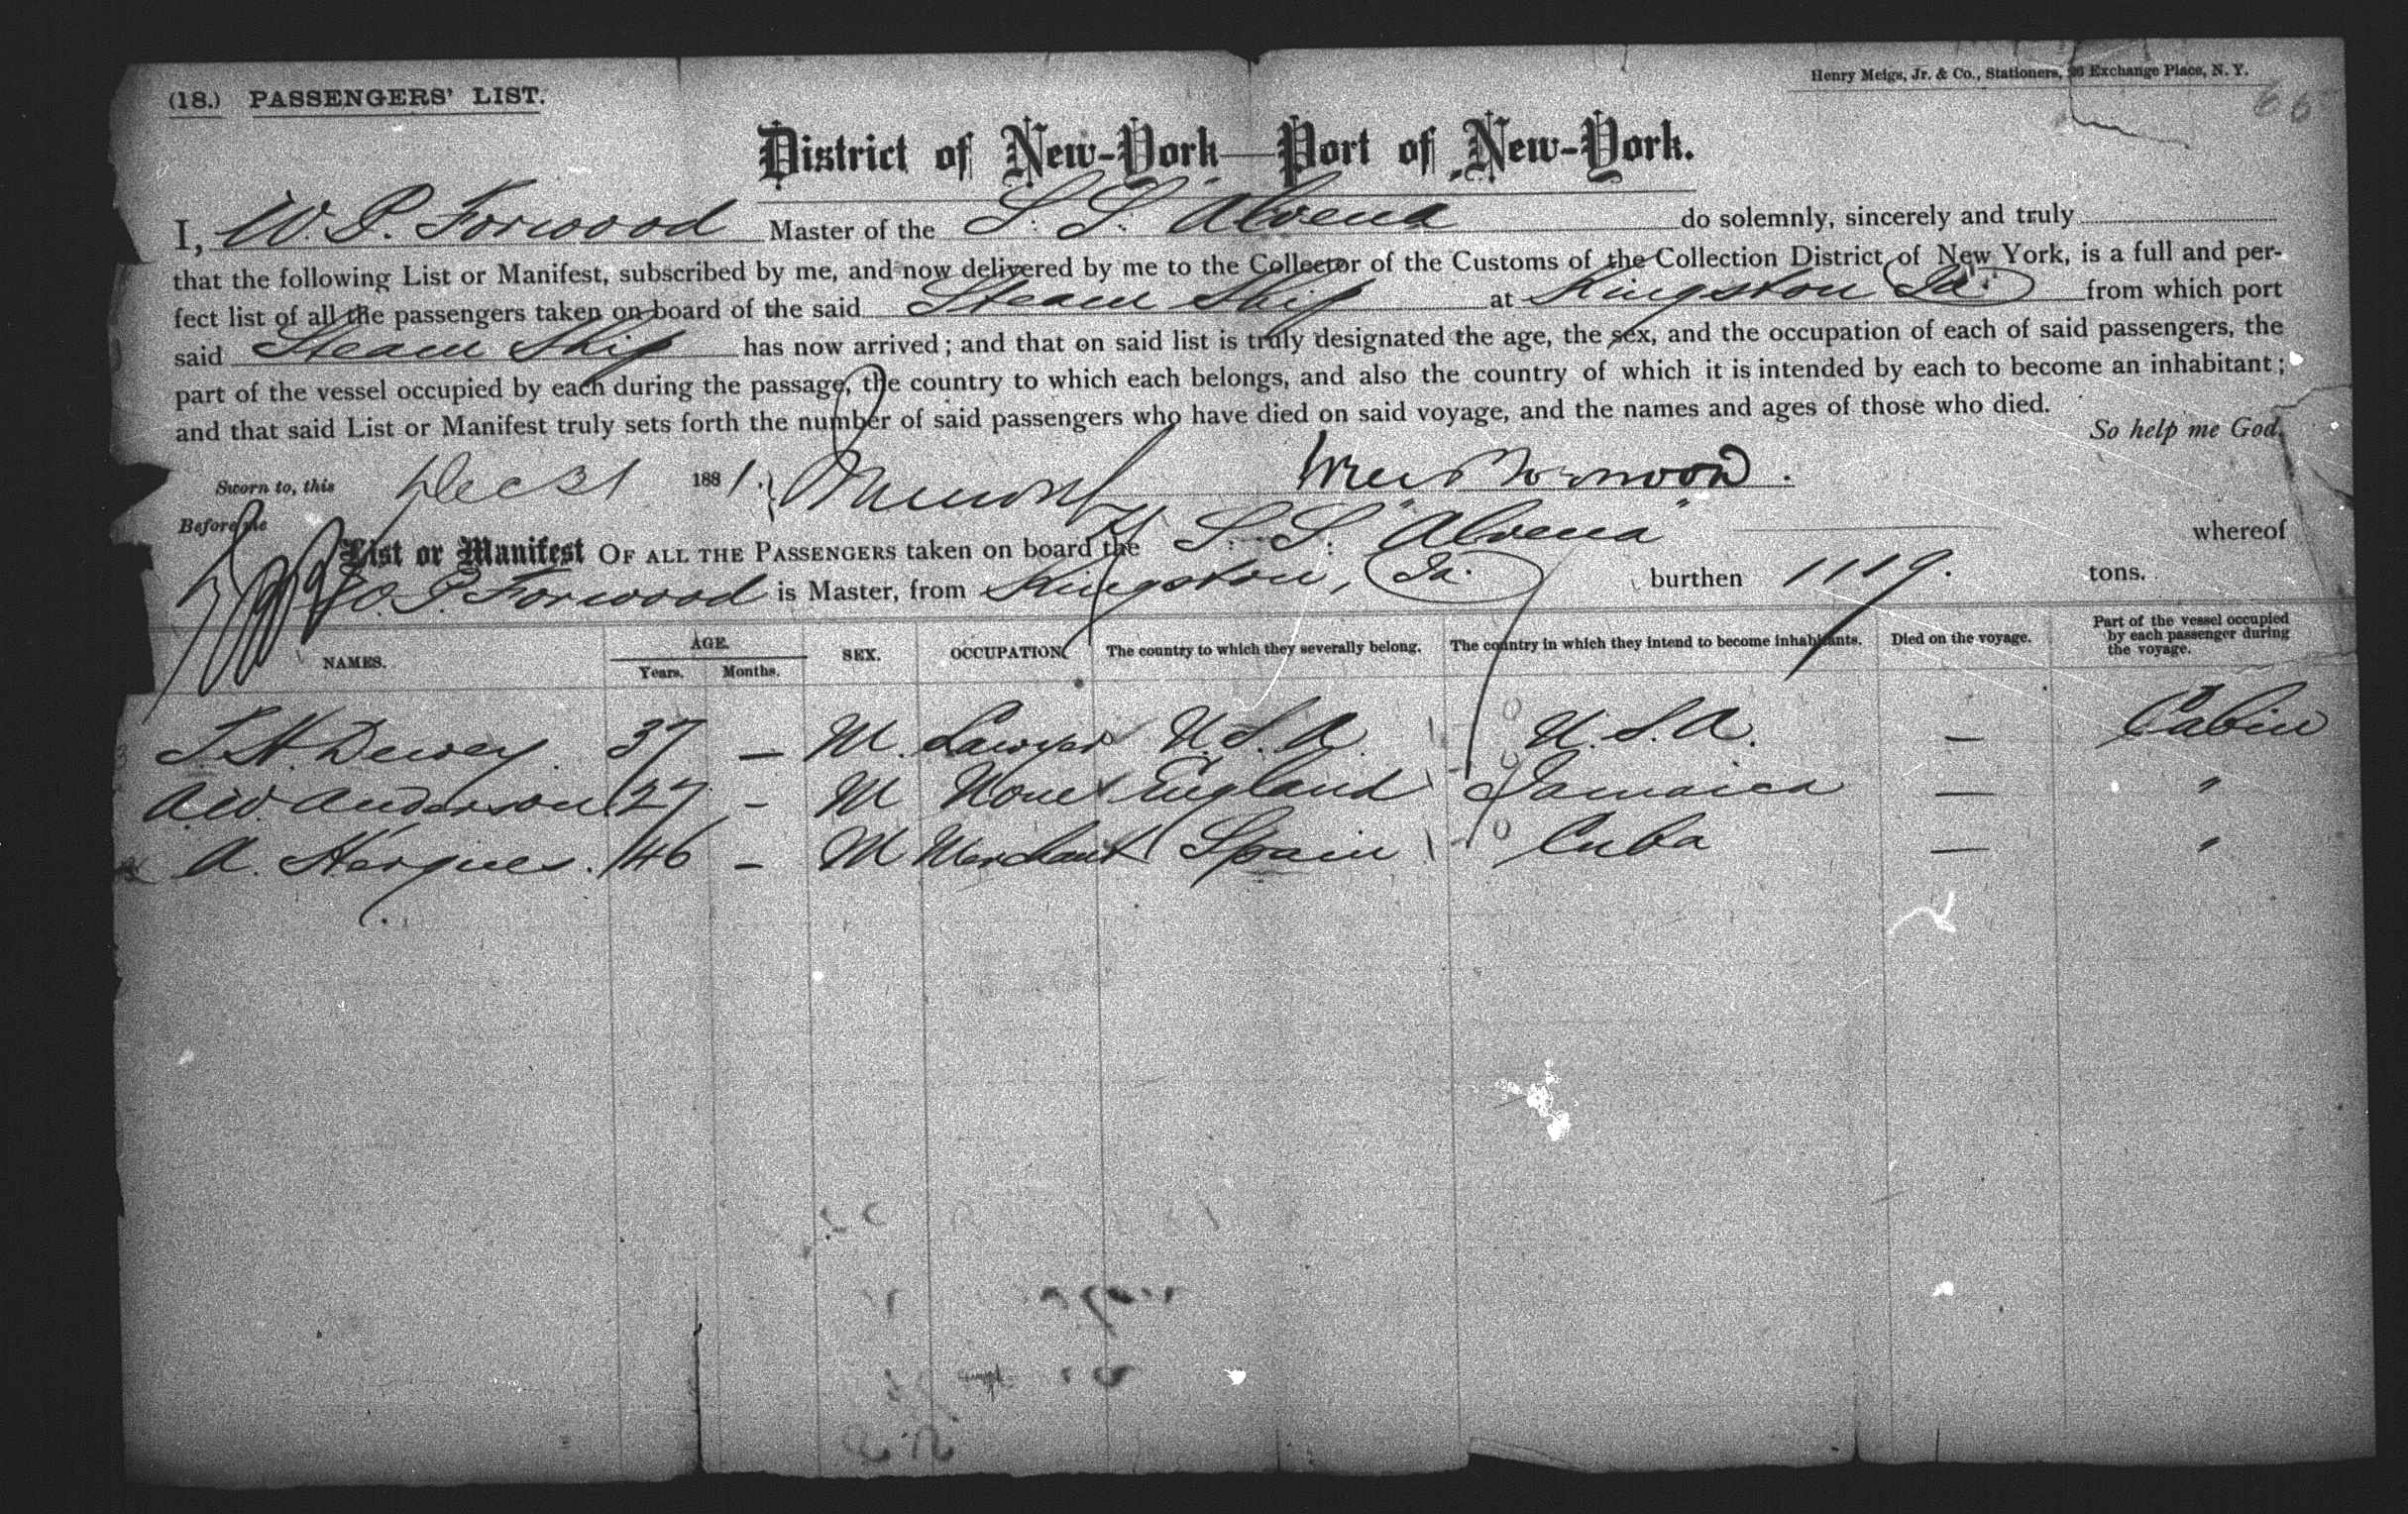 (18.) PASSENGERS' LIST.
Henry Meigs, Jr. & Co., Stationers, Exchange Place, N. Y.
66
District of New-York—Port of New-York.
I, W. P. Forwood Master of the S. S. Alvena do solemnly, sincerely and truly
that the following List or Manifest, subscribed by me, and now delivered by me to the Collector of the Customs of the Collection District of New York, is a full and per-
fect list of all the passengers taken on board of the said Steam Ship at Kingston Ja. from which port
said Steam Ship has now arrived; and that on said list is truly designated the age, the sex, and the occupation of each of said passengers, the
part of the vessel occupied by each during the passage, the country to which each belongs, and also the country of which it is intended by each to become an inhabitant;
and that said List or Manifest truly sets forth the number of said passengers who have died on said voyage, and the names and ages of those who died.
So help me God.
Sworn to, this Dec 31 1881.
Before me
List or Manifest OF ALL THE PASSENGERS taken on board the S. S. "Alvena" whereof
W. P. Forwood is Master, from Kingston, Ja. burthen 1119. tons.
NAMES. AGE. Years. Months. SEX. OCCUPATION The country to which they severally belong. The country in which they intend to become inhabitants. Died on the voyage. Part of the vessel occupied by each passenger during the voyage.
Dewey. 37 — M. Lawyer U.S.A. U.S.A. — Cabin
A.W. Anderson 27 - M None England Jamaica — "
A. 46 - M Merchant Spain Cuba — "